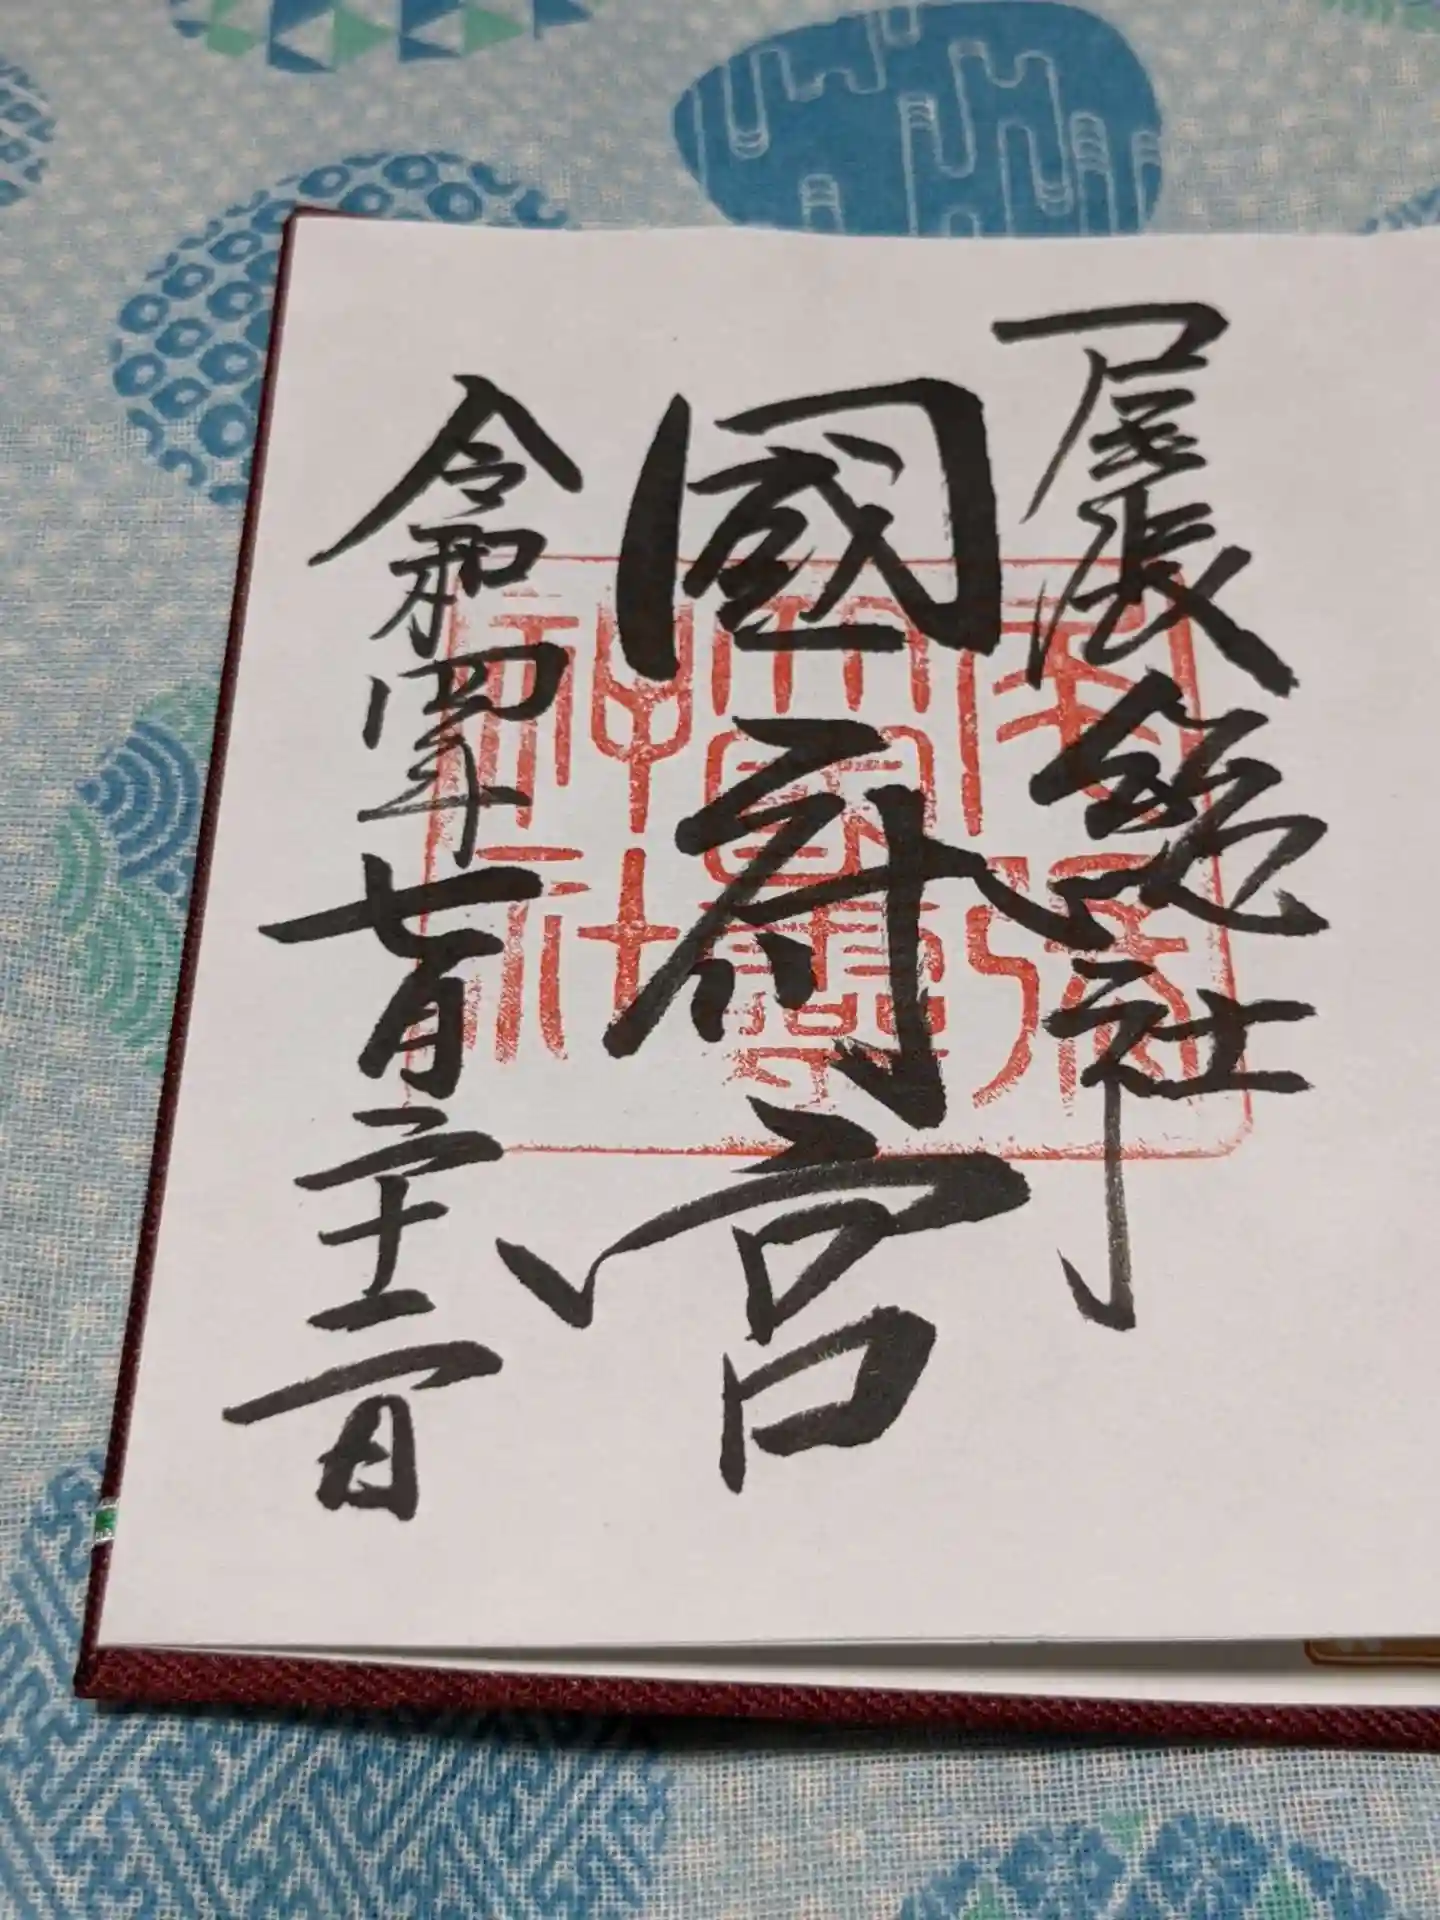 尾張総社
國府宮
令和四年七月二十二日
尾張
大國靈
神社